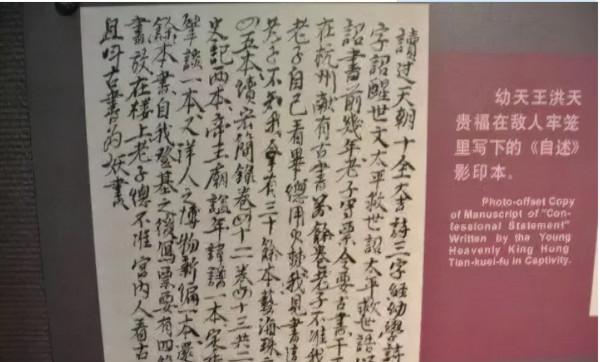 讀过天朝十全大吉詩三字經幼學詩
字詔醒世文太平救世詔太平救世誥
詔書前幾年老子寫票令要古書干
在杭州献有古書萬餘卷老子不准我
老子自己看畢總用火焚我見書這
老子不知我拿有三十餘本藝海珠
四五本續宋簡錄卷四十二卷四十三共二
史記两本帝王廟諡年諱譜一本
聲談一本又洋人之博物新編一本還
餘本書自我登基之後寫票要有四
書放在楼上老子總不准宮内人看古
且叫古書為妖書
幼天王洪天
贵福在敌人牢笼
里写下的《自述》
影印本。
Photo-offset Copy
of Manuscript of "Con-
fessional Statement"
Written by the Young
Heavenly King Hung
Tian-kuei-fu in Captivity.